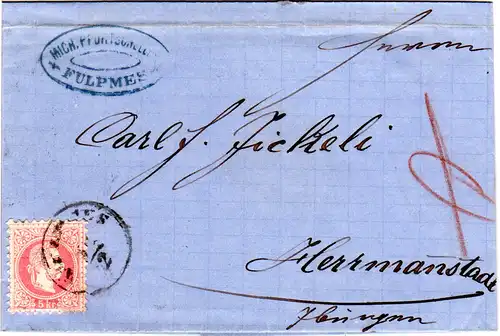 MICH. PFURTSCHELLER
FULPMES
Herrn
Carl F. Jickeli
Herrmanstadt
5 kr